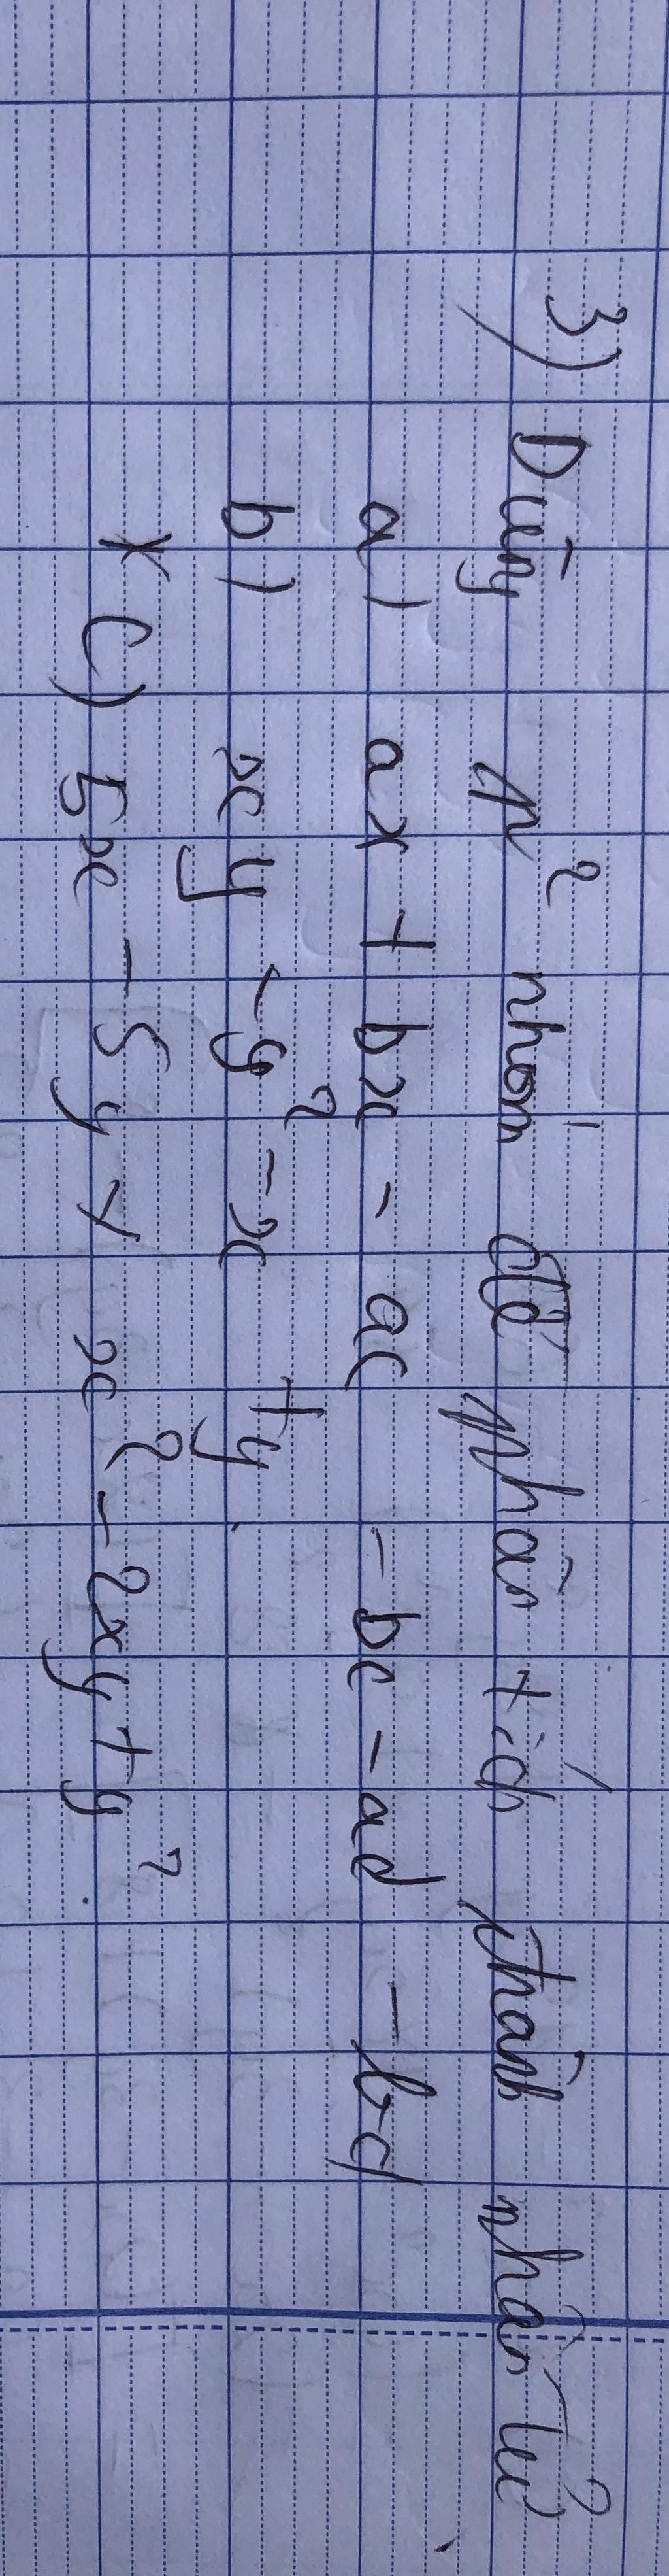 3) Dùng p² nhóm để phân tích thành nhân tử
a) ax + bx - ac - bc - ad - bd
b) xy - y² - x + y.
* c) 5x - 5y + x² - 2xy + y².